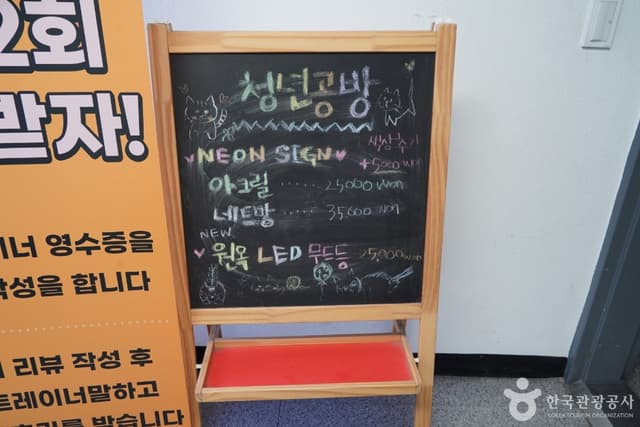 2회
받자!
이너 영수증을
작성을 합니다
리뷰 작성 후
트레이너말하고
받습니다
청년공방
NEON SIGN
색상추가
+5000 won
아크릴 ...... 25000 won
네트망 ...... 35000 won
NEW
원목 LED 무드등 25000 won
한국관광공사
KOREA TOURISM ORGANIZATION